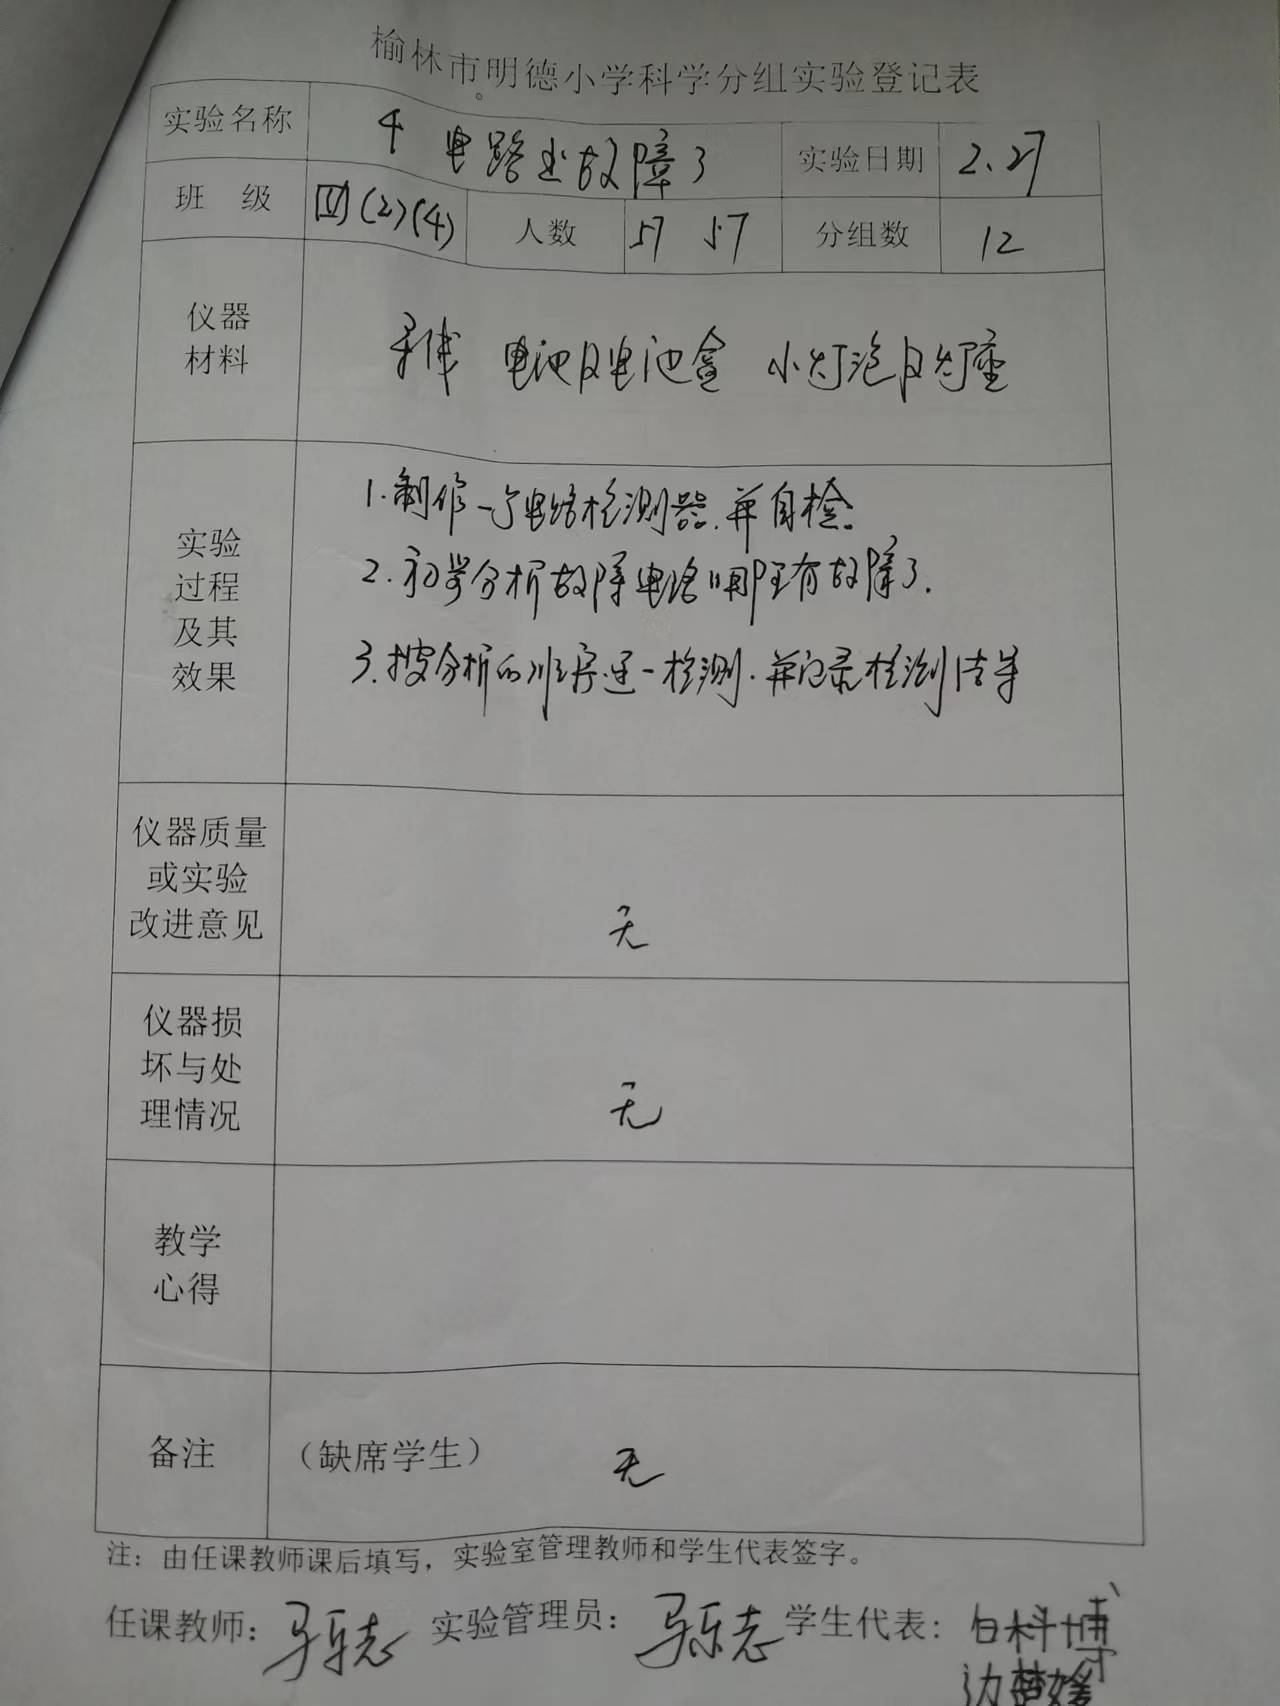 榆林市明德小学科学分组实验登记表
实验名称 4 电路出故障了 实验日期 2.27
班 级 四(2)(4) 人数 57 57 分组数 12
仪器
材料
导线 电池及电池盒 小灯泡及灯座
实验
过程
及其
效果
1.制作一个电路检测器.并自检.
2.初步分析故障电路哪里有故障了.
3.按分析的顺序逐一检测.并记录检测结果
仪器质量
或实验
改进意见
无
仪器损
坏与处
理情况
无
教学
心得
备注 (缺席学生) 无
注：由任课教师课后填写，实验室管理教师和学生代表签字。
任课教师：马乐志 实验管理员：马乐志 学生代表：白科博
边楚媛